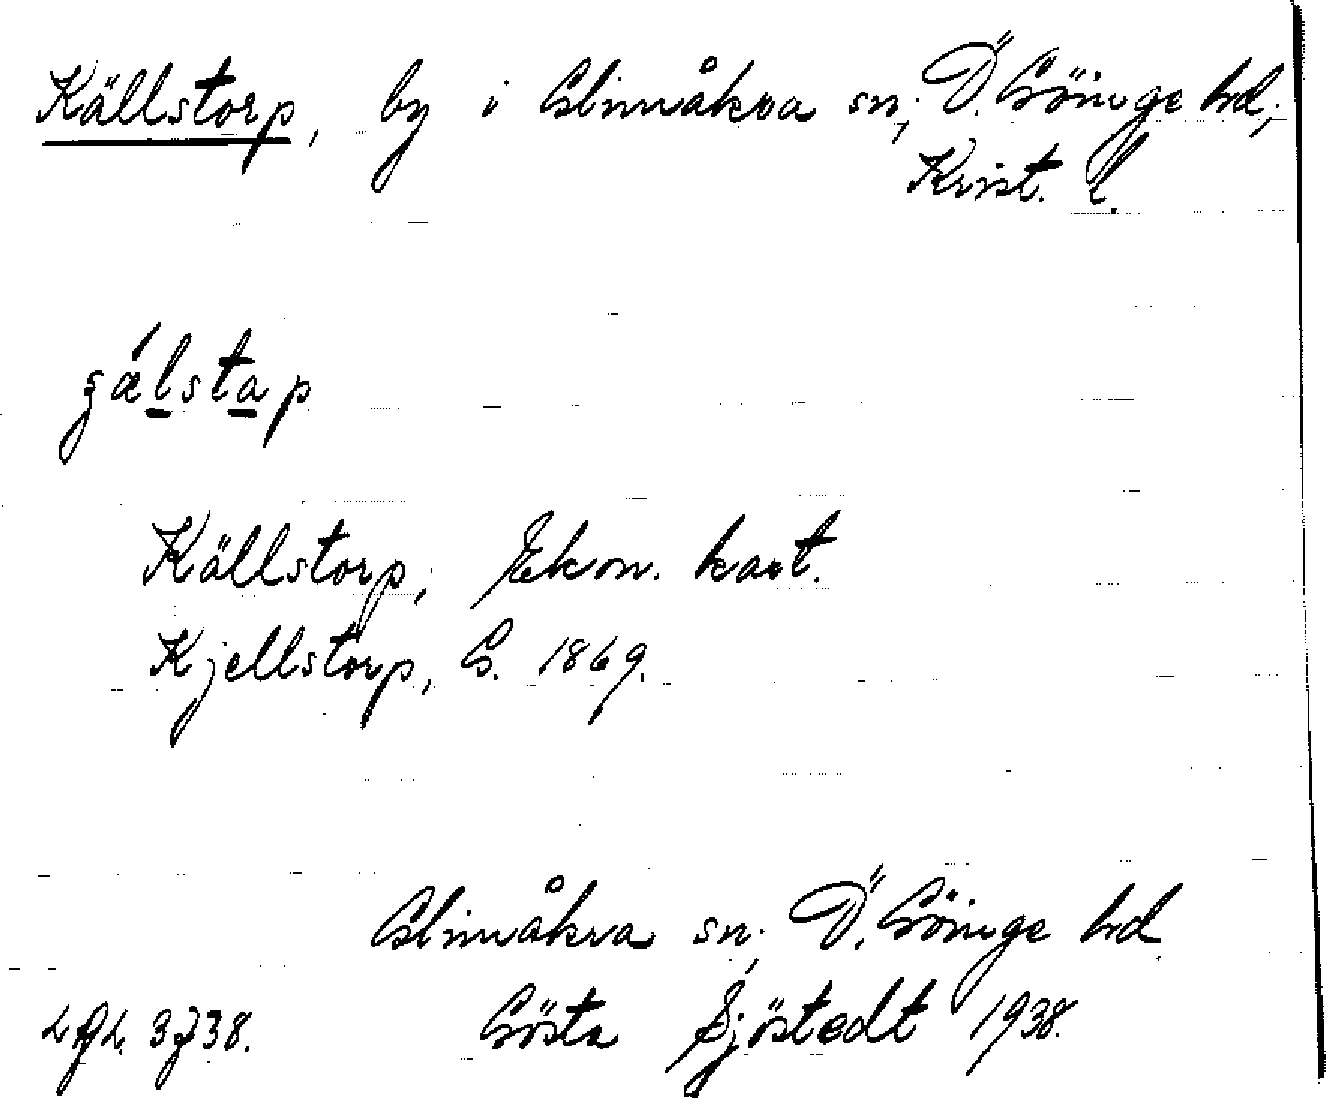 Källstorp, by i Glimåkra sn; Ö. Göinge hd;
Krist. l.
Källstorp; Ekon. kart.
Kjellstorp, G. 1869.
Glimåkra sn; Ö. Göinge hd
Gösta Sjöstedt 1938.